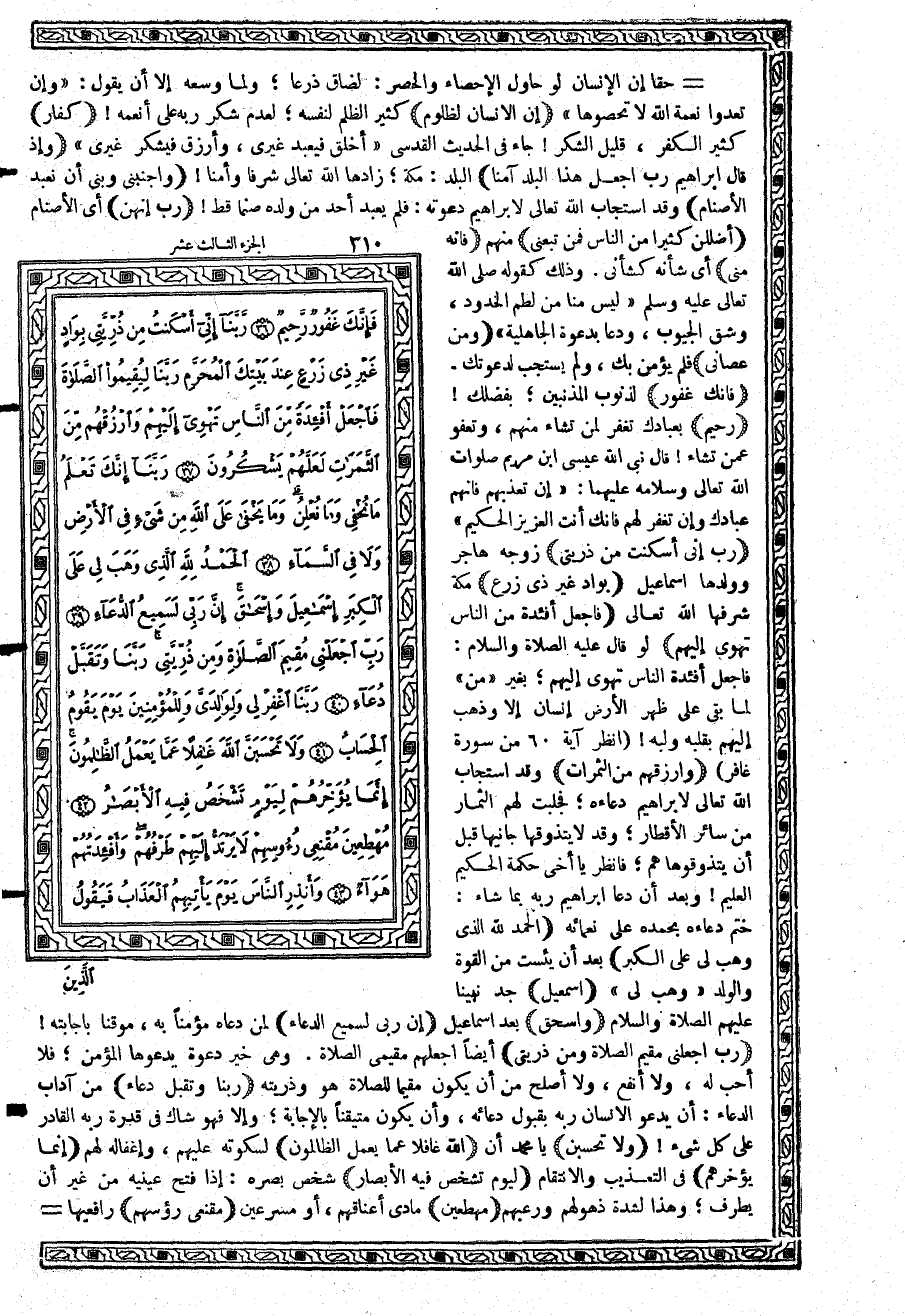 = حقا إن الإنسان لو حاول الإحصاء والحصر : لضاق ذرعا ؛ ولما وسعه إلا أن يقول : «وإن
تعدوا نعمة الله لا تحصوها » (إن الانسان لظلوم) كثير الظلم لنفسه ؛ لعدم شكر ربه على أنعمه ! (كفار)
كثير الكفر ، قليل الشكر ! جاء فى الحديث القدسى « أخلق فيعبد غيرى ، وأرزق فيشكر غيرى » (وإذ
قال ابراهيم رب اجعل هذا البلد آمنا) البلد : مكة ؛ زادها الله تعالى شرفا وأمنا ! (واجنبنى وبنى أن نعبد
الأصنام) وقد استجاب الله تعالى لابراهيم دعوته : فلم يعبد أحد من ولده صنما قط ! (رب إنهن) أى الأصنام
(أضللن كثيرا من الناس فمن تبعنى) منهم (فانه
منى) أى شأنه كشأنى . وذلك كقوله صلى الله
تعالى عليه وسلم « ليس منا من لطم الخدود ،
وشق الجيوب ، ودعا بدعوة الجاهلية» (ومن
عصانى) فلم يؤمن بك ، ولم يستجب لدعوتك .
(فانك غفور) لذنوب المذنبين ؛ بفضلك !
(رحيم) بعبادك تغفر لمن تشاء منهم ، وتعفو
عمن تشاء ! قال نبي الله عيسى ابن مريم صلوات
الله تعالى وسلامه عليهما : « إن تعذبهم فانهم
عبادك وإن تغفر لهم فانك أنت العزيز الحكيم »
(رب إنى أسكنت من ذريتى) زوجه هاجر
وولدها اسماعيل (بواد غير ذى زرع) مكة
شرفها الله تعالى (فاجعل أفئدة من الناس
تهوى إليهم) لو قال عليه الصلاة والسلام :
فاجعل أفئدة الناس تهوى إليهم ؛ بغير «من»
لما بقى على ظهر الأرض إنسان إلا وذهب
إليهم بقلبه ولبه ! (انظر آية ٦٠ من سورة
غافر) (وارزقهم من الثمرات) وقد استجاب
الله تعالى لابراهيم دعاءه ؛ فجلبت لهم الثمار
من سائر الأقطار ؛ وقد لا يتذوقها جانيها قبل
أن يتذوقوها هم ؛ فانظر يا أخى حكمة الحكيم
العليم ! وبعد أن دعا ابراهيم ربه بما شاء :
ختم دعاءه بحمده على نعمائه (الحمد لله الذى
وهب لى على الكبر) بعد أن يئست من القوة
والولد « وهب لى » (اسمعيل) جد نبينا
عليهم الصلاة والسلام (واسحق) بعد اسماعيل (إن ربى لسميع الدعاء) لمن دعاه مؤمناً به ، موقنا باجابته !
(رب اجعلنى مقيم الصلاة ومن ذريتى) أيضاً اجعلهم مقيمى الصلاة . وهى خير دعوة يدعوها المؤمن ؛ فلا
أحب له ، ولا أنفع ، ولا أصلح من أن يكون مقيما للصلاة هو وذريته (ربنا وتقبل دعاء) من آداب
الدعاء : أن يدعو الانسان ربه بقبول دعائه ، وأن يكون متيقناً بالإجابة ؛ وإلا فهو شاك فى قدرة ربه القادر
على كل شىء ! (ولا تحسبن) يا محمد أن (الله غافلا عما يعمل الظالمون) لسكوته عليهم ، وإغفاله لهم (إنما
يؤخرهم) فى التعذيب والانتقام (ليوم تشخص فيه الأبصار) شخص بصره : إذا فتح عينيه من غير أن
يطرف ؛ وهذا لشدة ذهولهم ورعبهم (مهطعين) مادى أعناقهم ، أو مسرعين (مقنعى رؤسهم) رافعيها =
٣١٠ الجزء الثالث عشر
فَإِنَّكَ غَفُورٌ رَّحِيمٌ ٣٦ رَّبَّنَآ إِنِّىٓ أَسْكَنتُ مِن ذُرِّيَّتِى بِوَادٍ
غَيْرِ ذِى زَرْعٍ عِندَ بَيْتِكَ ٱلْمُحَرَّمِ رَبَّنَا لِيُقِيمُواْ ٱلصَّلَوٰةَ
فَٱجْعَلْ أَفْـِٔدَةً مِّنَ ٱلنَّاسِ تَهْوِىٓ إِلَيْهِمْ وَٱرْزُقْهُم مِّنَ
ٱلثَّمَرَٰتِ لَعَلَّهُمْ يَشْكُرُونَ ٣٧ رَبَّنَآ إِنَّكَ تَعْلَمُ
مَا نُخْفِى وَمَا نُعْلِنُ ۗ وَمَا يَخْفَىٰ عَلَى ٱللَّهِ مِن شَىْءٍ فِى ٱلْأَرْضِ
وَلَا فِى ٱلسَّمَآءِ ٣٨ ٱلْحَمْدُ لِلَّهِ ٱلَّذِى وَهَبَ لِى عَلَى
ٱلْكِبَرِ إِسْمَٰعِيلَ وَإِسْحَٰقَ ۚ إِنَّ رَبِّى لَسَمِيعُ ٱلدُّعَآءِ ٣٩
رَبِّ ٱجْعَلْنِى مُقِيمَ ٱلصَّلَوٰةِ وَمِن ذُرِّيَّتِى ۚ رَبَّنَا وَتَقَبَّلْ
دُعَآءِ ٤٠ رَبَّنَا ٱغْفِرْ لِى وَلِوَٰلِدَىَّ وَلِلْمُؤْمِنِينَ يَوْمَ يَقُومُ
ٱلْحِسَابُ ٤١ وَلَا تَحْسَبَنَّ ٱللَّهَ غَٰفِلًا عَمَّا يَعْمَلُ ٱلظَّٰلِمُونَ ۚ
إِنَّمَا يُؤَخِّرُهُمْ لِيَوْمٍ تَشْخَصُ فِيهِ ٱلْأَبْصَٰرُ ٤٢
مُهْطِعِينَ مُقْنِعِى رُءُوسِهِمْ لَا يَرْتَدُّ إِلَيْهِمْ طَرْفُهُمْ ۖ وَأَفْـِٔدَتُهُمْ
هَوَآءٌ ٤٣ وَأَنذِرِ ٱلنَّاسَ يَوْمَ يَأْتِيهِمُ ٱلْعَذَابُ فَيَقُولُ
ٱلَّذِينَ